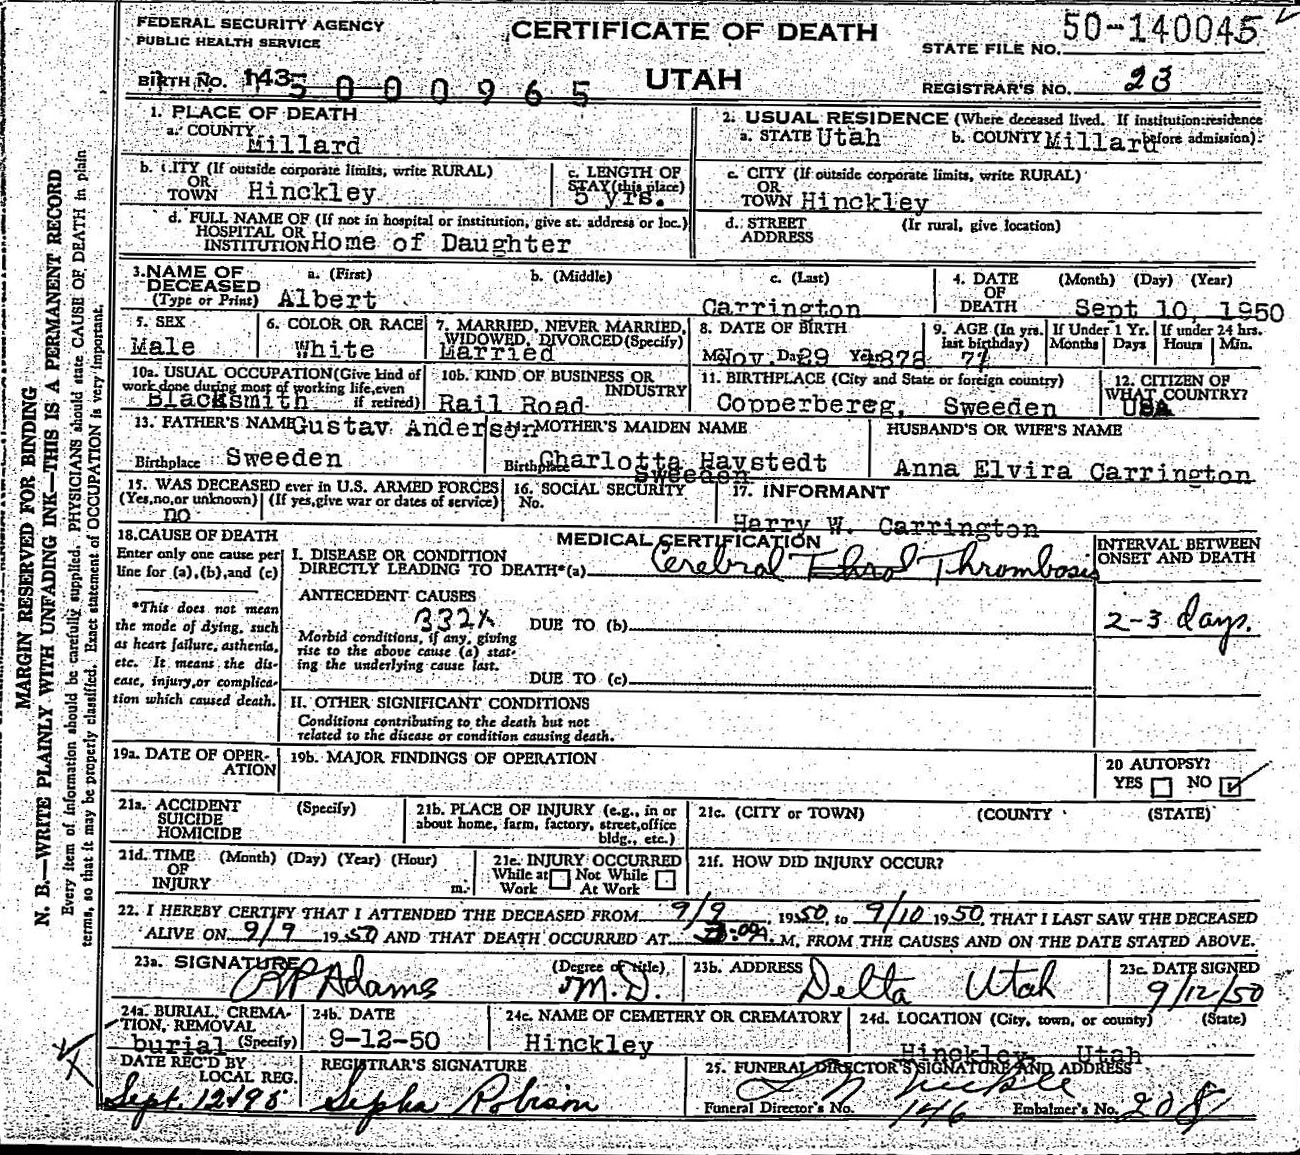 FEDERAL SECURITY AGENCY
PUBLIC HEALTH SERVICE
CERTIFICATE OF DEATH
UTAH
50-140045
STATE FILE NO.
BIRTH No. 143
5 0 0 0 9 6 5
REGISTRAR'S NO. 23
1. PLACE OF DEATH
a. COUNTY
Millard
2. USUAL RESIDENCE (Where deceased lived. If institution:residence before admission).
a. STATE Utah b. COUNTY Millard
b. CITY (If outside corporate limits, write RURAL)
OR
TOWN Hinckley
c. LENGTH OF
STAY (this place)
5 yrs.
c. CITY (If outside corporate limits, write RURAL)
OR
TOWN Hinckley
d. FULL NAME OF (If not in hospital or institution, give st. address or loc.)
HOSPITAL OR
INSTITUTION Home of Daughter
d. STREET (If rural, give location)
ADDRESS
3. NAME OF
DECEASED
(Type or Print)
a. (First) b. (Middle) c. (Last)
Albert Carrington
4. DATE
OF
DEATH
(Month) (Day) (Year)
Sept 10, 1950
5. SEX
Male
6. COLOR OR RACE
White
7. MARRIED, NEVER MARRIED,
WIDOWED, DIVORCED(Specify)
Married
8. DATE OF BIRTH
Nov. Da 29 Yr 1878
9. AGE (In yrs.
last birthday)
71
If Under 1 Yr.
Months Days
If under 24 hrs.
Hours Min.
10a. USUAL OCCUPATION(Give kind of
work done during most of working life,even
if retired)
Blacksmith
10b. KIND OF BUSINESS OR
INDUSTRY
Rail Road
11. BIRTHPLACE (City and State or foreign country)
Copperbereg, Sweeden
12. CITIZEN OF
WHAT COUNTRY?
USA
13. FATHER'S NAME Gustav Anderson
Birthplace Sweeden
MOTHER'S MAIDEN NAME
Charlotta Haystedt
Birthplace Sweeden
HUSBAND'S OR WIFE'S NAME
Anna Elvira Carrington
15. WAS DECEASED ever in U.S. ARMED FORCES
(Yes,no,or unknown) (If yes,give war or dates of service)
no
16. SOCIAL SECURITY
No.
17. INFORMANT
Harry W. Carrington
18. CAUSE OF DEATH
Enter only one cause per
line for (a),(b),and (c)
*This does not mean
the mode of dying, such
as heart failure, asthenia,
etc. It means the dis-
ease, injury,or complica-
tion which caused death.
MEDICAL CERTIFICATION
I. DISEASE OR CONDITION
DIRECTLY LEADING TO DEATH*(a) Cerebral Thrombosis
ANTECEDENT CAUSES
332X
DUE TO (b)
Morbid conditions, if any, giving
rise to the above cause (a) stat-
ing the underlying cause last.
DUE TO (c)
INTERVAL BETWEEN
ONSET AND DEATH
2-3 days.
II. OTHER SIGNIFICANT CONDITIONS
Conditions contributing to the death but not
related to the disease or condition causing death.
19a. DATE OF OPER-
ATION
19b. MAJOR FINDINGS OF OPERATION
20 AUTOPSY?
YES NO
21a. ACCIDENT (Specify)
SUICIDE
HOMICIDE
21b. PLACE OF INJURY (e.g., in or
about home, farm, factory, street,office
bldg., etc.)
21c. (CITY or TOWN) (COUNTY (STATE)
21d. TIME (Month) (Day) (Year) (Hour)
OF
INJURY m.
21e. INJURY OCCURRED
While at Not While
Work At Work
21f. HOW DID INJURY OCCUR?
22. I HEREBY CERTIFY THAT I ATTENDED THE DECEASED FROM 9/9, 1950, to 9/10 1950, THAT I LAST SAW THE DECEASED
ALIVE ON 9/9 1950 AND THAT DEATH OCCURRED AT M, FROM THE CAUSES AND ON THE DATE STATED ABOVE.
23a. SIGNATURE (Degree or title)
Adams M.D.
23b. ADDRESS
Delta Utah
23c. DATE SIGNED
9/12/50
24a. BURIAL, CREMA-
TION, REMOVAL
(Specify)
burial
24b. DATE
9-12-50
24c. NAME OF CEMETERY OR CREMATORY
Hinckley
24d. LOCATION (City, town, or county) (State)
Hinckley Utah
DATE REC'D BY
LOCAL REG.
Sept. 12 195
REGISTRAR'S SIGNATURE
Robison
25. FUNERAL DIRECTOR'S SIGNATURE AND ADDRESS
Funeral Director's No. 146 Embalmer's No. 208
MARGIN RESERVED FOR BINDING
N. B.—WRITE PLAINLY WITH UNFADING INK—THIS IS A PERMANENT RECORD
Every item of information should be carefully supplied. PHYSICIANS should state CAUSE OF DEATH in plain
terms, so that it may be properly classified. Exact statement of OCCUPATION is very important.